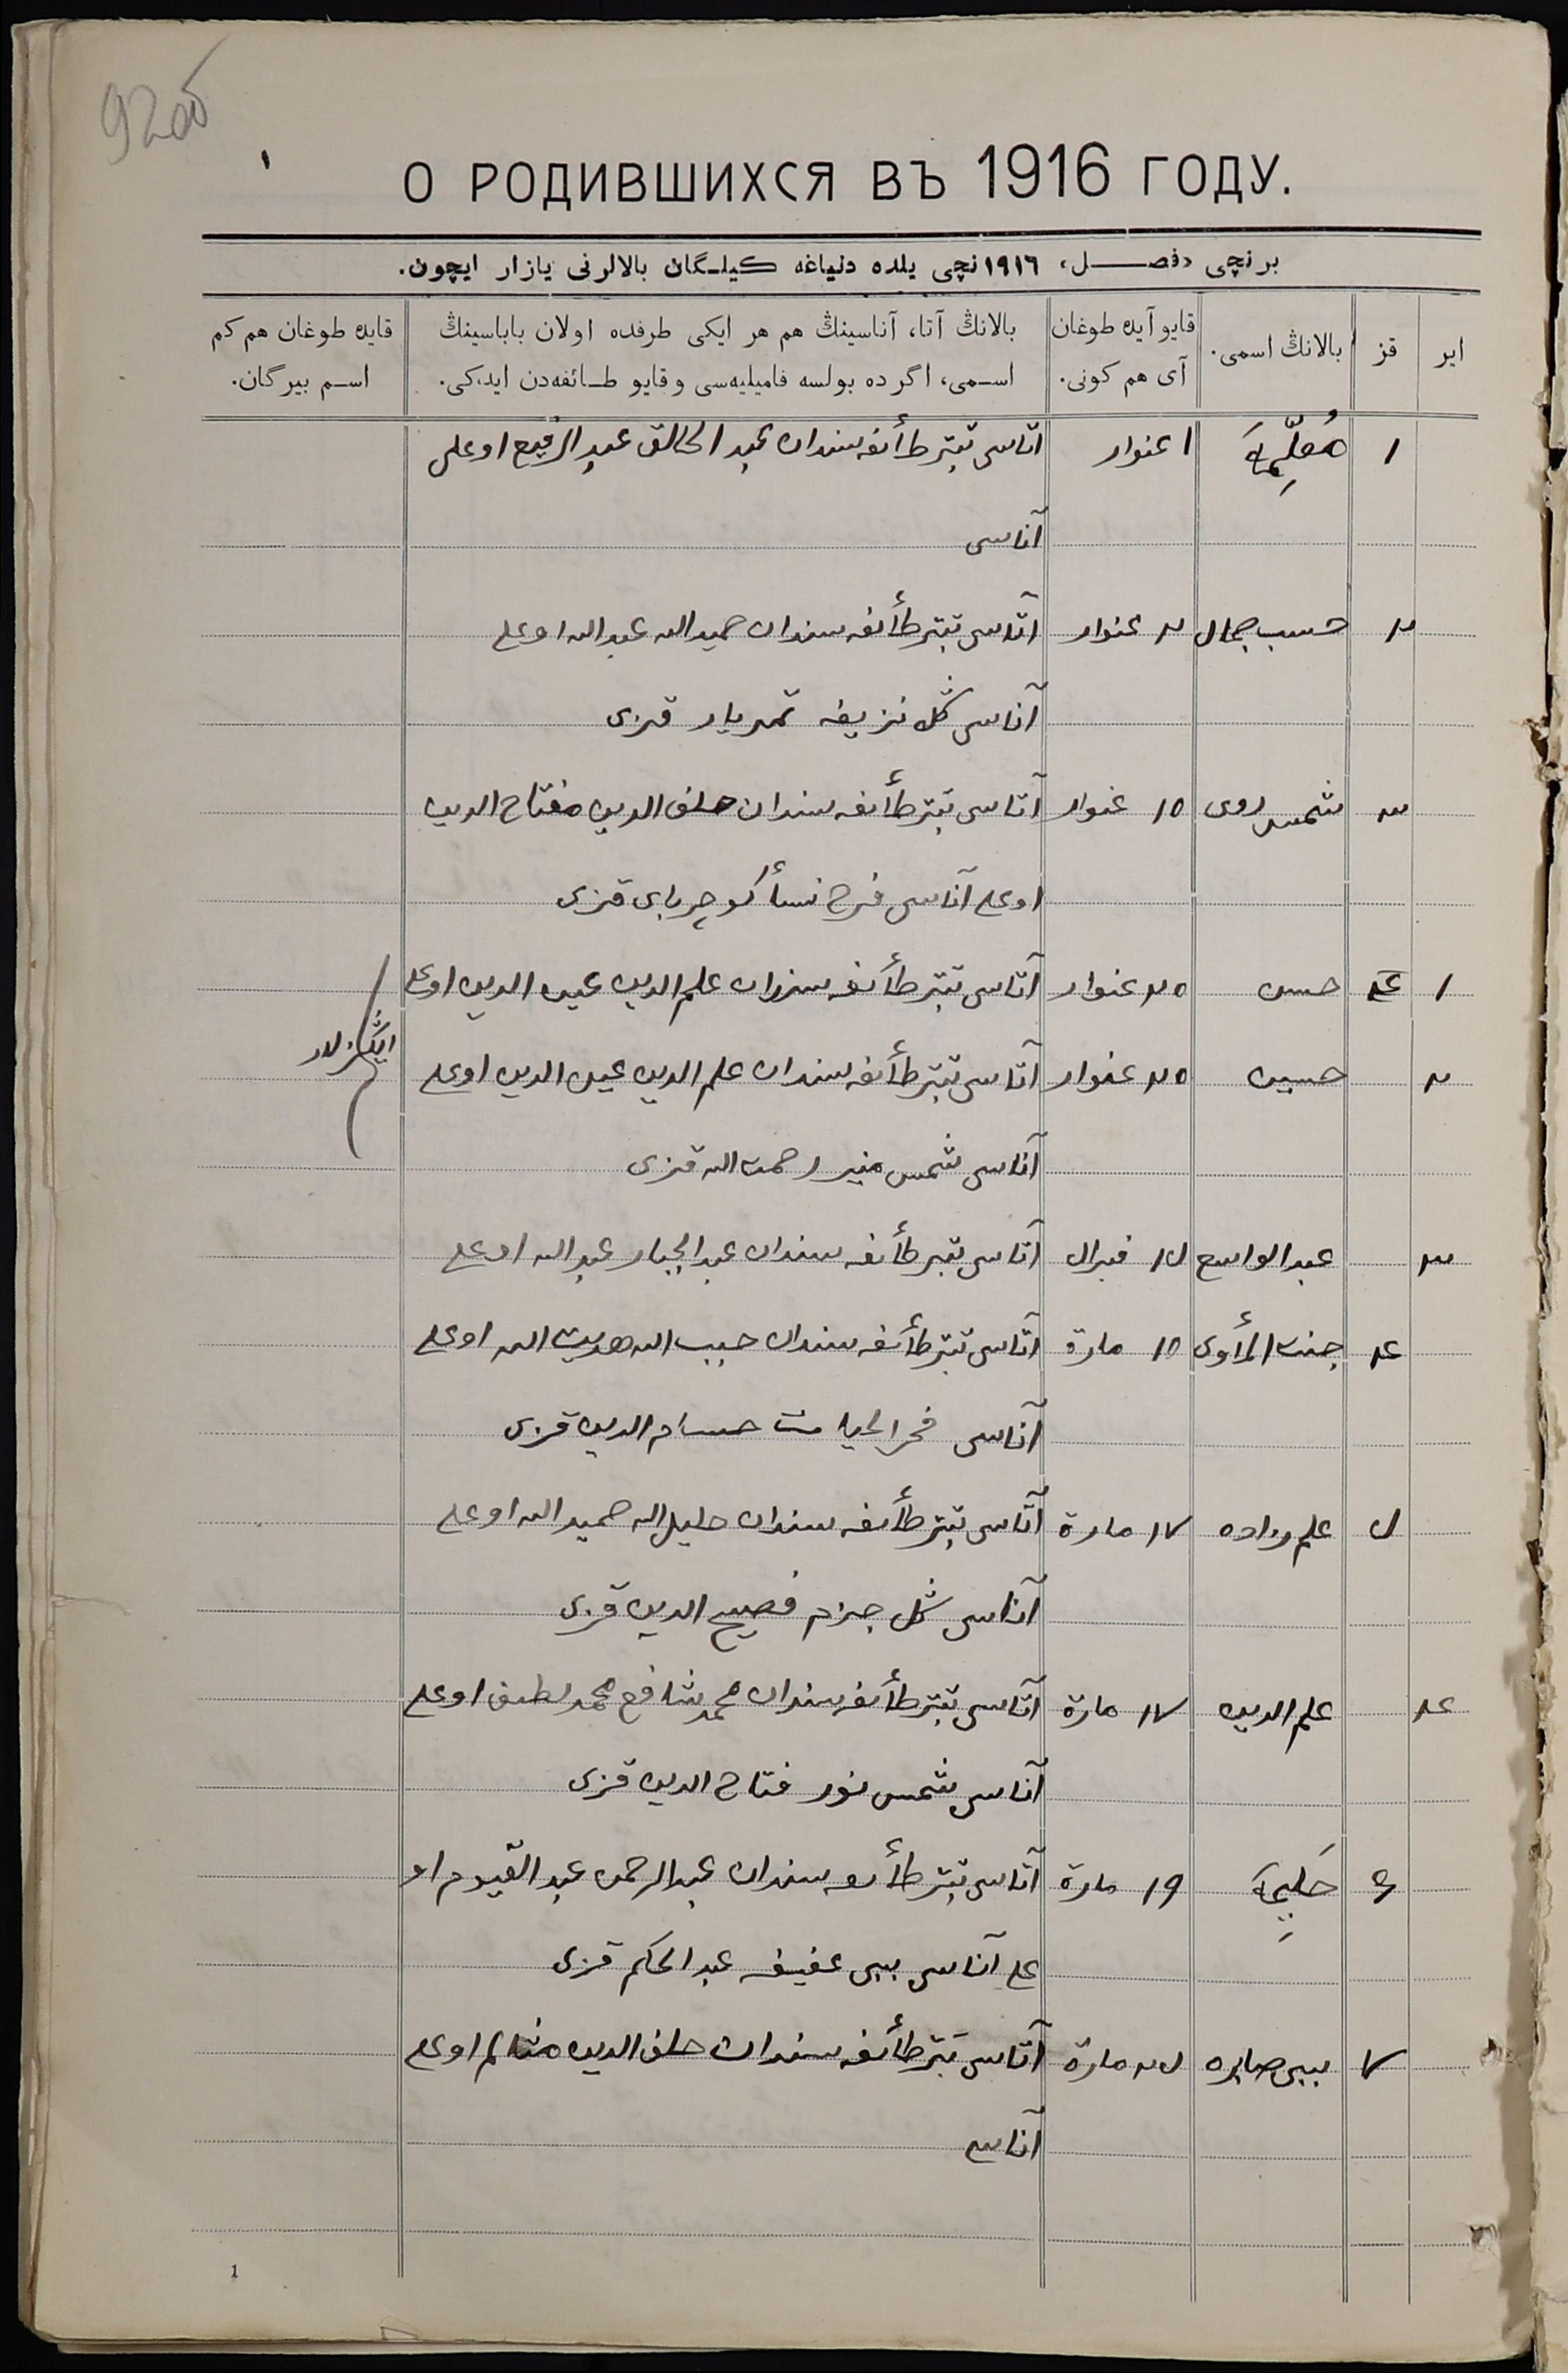 92об
О РОДИВШИХСЯ ВЪ 1916 ГОДУ.
برنچی «فصل» ١٩١٦نچی یلده دنیاغه کیلـگان بالالرنی یازار ایچون.
ایر
قز
بالانڭ اسمی.
قایو آیده طوغان
آی هم کونی.
بالانڭ آتا، آناسینڭ هم هر ایکی طرفده اولان باباسینڭ
اسـمی، اگر ده بولسه فامیلیه‌سی و قایو طـائفه‌دن ایدکی.
قایده طوغان هم کم
اسـم بیرگان.
١ مُعلِّمَة ١ غنوار اتاسی تبتر طأئفه سندان عبد الخالق عبد الرفیع اوغلی
آناسی
٢ حسب جمال ٢ غنوار آتاسی تبتر طأئفه سندان حمیدالله عبدالله اوغلی
آناسی گل نزیفه تمریار قزی
٣ شمس روی ١٥ غنوار آتاسی تبتر طأئفه سندان خلف الدین مفتاح الدین
اوغلی آناسی فرح نسأ کوچربای قزی
١ حسن ٢٥ غنوار آتاسی تبتر طأئفه سندان علم الدین عین الدین اوغلی
ایگزلار
٢ حسین ٢٥ غنوار آتاسی تبتر طأئفه سندان علم الدین عین الدین اوغلی
آناسی شمس منیر رحمت الله قزی
٣ عبد الواسع ١٥ فبرال آتاسی تبتر طأئفه سندان عبد الجبار عبد الله اوغلی
٤ جنت المأوی ١٥ مارت آتاسی تبتر طأئفه سندان حبیب الله هدیت الله اوغلی
آناسی فخر الحیات حسام الدین قزی
٥ علم زاده ١٧ مارت آتاسی تبتر طأئفه سندان خلیل الله حمید الله اوغلی
آناسی گل جزم فصیح الدین قزی
٤ علم الدین ١٧ مارت آتاسی تبتر طأئفه سندان محمد شافع محمد لطیف اوغلی
آناسی شمس نور فتاح الدین قزی
٦ حَلِیمَة ١٩ مارت آتاسی تبتر طأئفه سندان عبد الرحمن عبد القیوم او
غلی آناسی بیبی عفیفه عبد الحکم قزی
٧ بیبی صابره ٢٥ مارت آتاسی تبتر طأئفه سندان خلف الدین اوغلی
آناسی
1